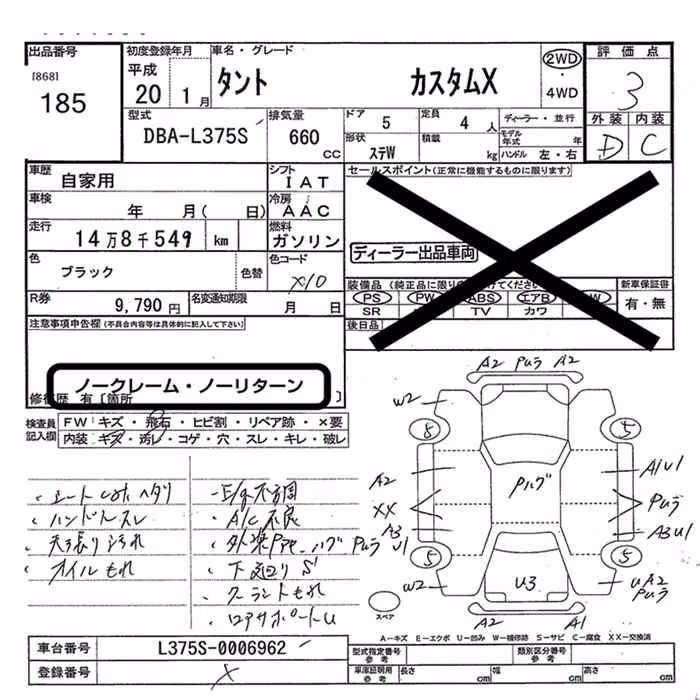 出品番号 初度登録年月 車名・グレード 評価点
[868] 平成 タント カスタムX 2WD ・ 4WD 3
185 20 1月
型式 排気量 ドア 5 定員 4人 ディーラー・並行 外装 内装
DBA-L375S 660 CC 形状 ステW 積載 kg モデル年式 年 D C
ハンドル 左・右
車歴 自家用 シフト IAT セールスポイント(正常に機能するものに限ります)
車検 年 月( 日) 冷房 AAC
走行 14万8千549 km 燃料 ガソリン ディーラー出品車両
色 ブラック 色替 色コード X10
装備品(純正品に限り けてください 新車保証書
PS PW ABS エアB W 有・無
R券 9,790円 名変通知期限 月 日 SR TV カワ
後日品
注意事項申告欄(不具合内容等は具体的に記入して下さい)
ノークレーム・ノーリターン
修復歴 有 [箇所 ]
検査員記入欄 FW キズ・飛石・ヒビ割・リペア跡・×要
内装 キズ・汚レ・コゲ・穴・スレ・キレ・破レ
・シートしわ ヘタリ ・E/g不調
・ハンドルスレ ・A/C不良
・天張り汚れ ・外装P跡、ハゲ
・オイルもれ ・下廻りS
・クーラントもれ
・ロアサポートU
A2 Puラ A2
W2
8 5
A2 Pハゲ A1U1
XX Puラ
A3 A3U1
PuラU1
5 5
W2 U3 UA2
Puラ
スペア A2 A1
A－キズ E－エクボ U－凹み W－補修跡 S－サビ C－腐食 XX－交換済
車台番号 L375S-0006962 型式指定番号 参考 類別区分番号 参考
登録番号 X 車庫証明用 参考 長さ cm 幅 cm 高さ cm